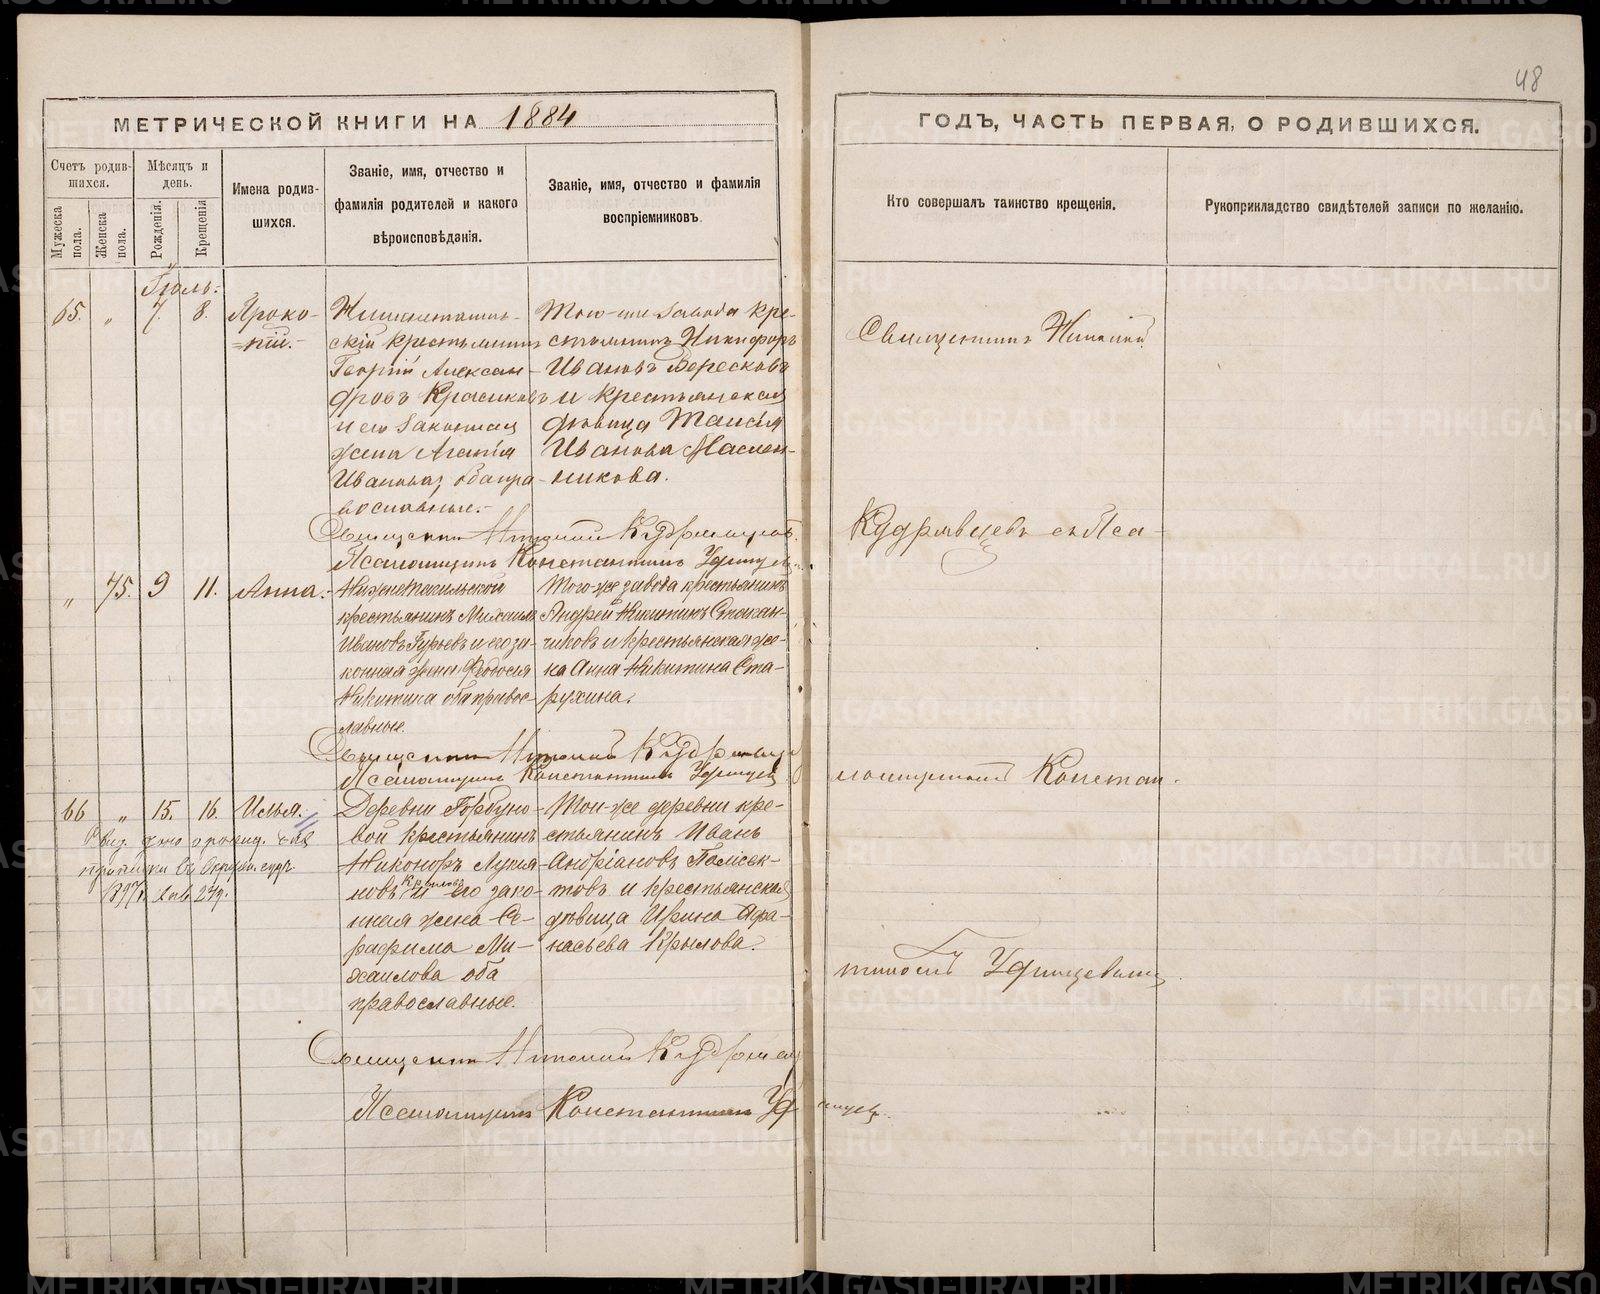 48
МЕТРИЧЕСКОЙ КНИГИ НА 1884
ГОДЪ, ЧАСТЬ ПЕРВАЯ, О РОДИВШИХСЯ.
Счетъ родив-
шихся.
Мужеска пола.
Женска пола.
Мѣсяцъ и
день.
Рожденія.
Крещенія
Имена родив-
шихся.
Званіе, имя, отчество и
фамилія родителей и какого
вѣроисповѣданія.
Званіе, имя, отчество и фамилія
воспріемниковъ.
Кто совершалъ таинство крещенія.
Рукоприкладство свидѣтелей записи по желанію.
Іюль.
65. „ 7. 8. Проко-
=пій.-
скій крестьянинъ
Георгій Алексан-
дровъ Красиковъ
и его законная
жена Агапія
Иванова, оба пра-
вославные.-
Того-же завода кре-
стьянинъ Никифоръ
Ивановъ Вересковъ
и крестьянская
дѣвица Таисія
Иванова Маслен-
никова.
Священникъ Антоній Кудрявцевъ.
Псаломщикъ Константинъ Удинцевъ
„ 75. 9 11. Анна.-
Нижнетагильской
крестьянинъ Михаилъ
Ивановъ Гурьевъ и его за-
конная жена Феодосія
Никитина оба правос-
лавные.
Того-же завода крестьянинъ
Андрей Никитинъ Стакан-
чиковъ и крестьянская же-
на Анна Никитина Ста-
рухина.
Священникъ Антоній Кудрявцев
Псаломщикъ Константинъ Удинцев
66 „ 15. 16. Илья.
1897г.
Деревни Горбуно-
вой крестьянинъ
Никоноръ Лукія-
новъ Крыловъ и его зако-
нная жена Се-
рафима Ми-
хаилова оба
православные.
Той-же деревни кре-
стьянинъ Иванъ
Андріановъ Поліек-
товъ и крестьянская
дѣвица Ирина Афа-
насьева Крылова.
Священникъ Антоній Кудрявцев
Псаломщикъ Константинъ Удинцевъ.
Священникъ Антоній
Кудрявцевъ съ Пса-
ломщикомъ Констан-
тиномъ Удинцевымъ.